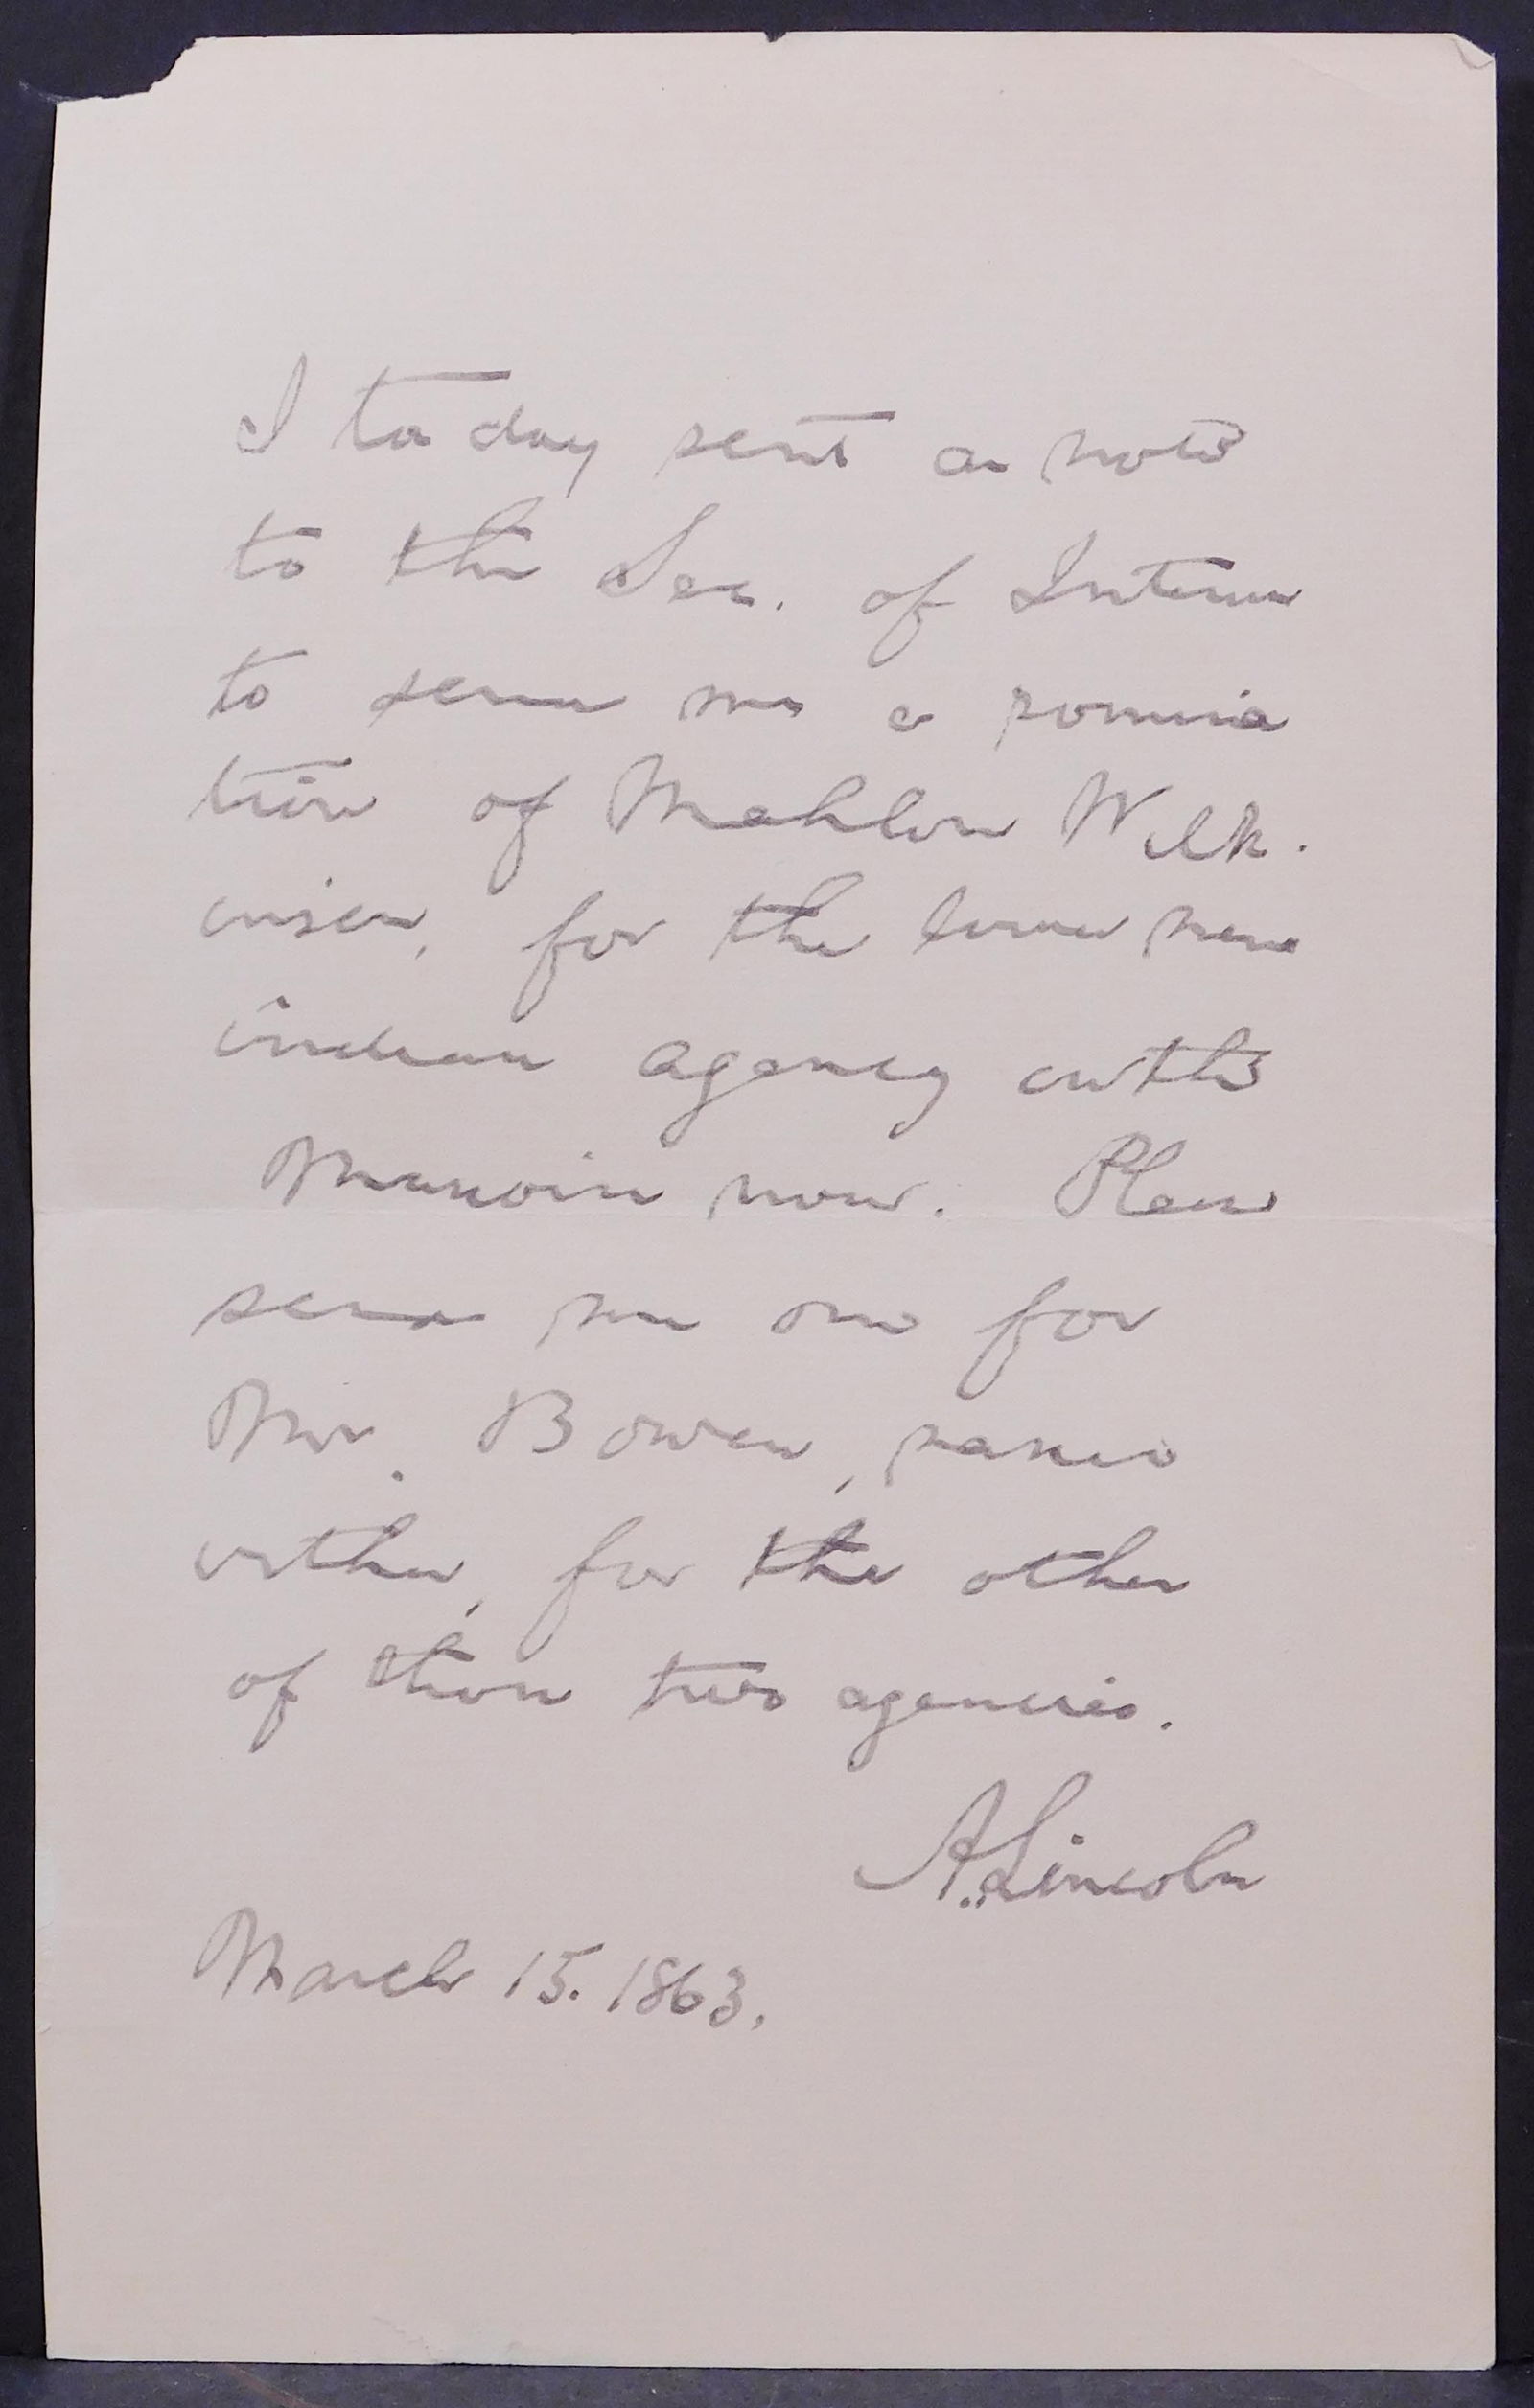 I to day sent a note
to the Sec. of Interior
to send me a nomina
tion of Mahlon Wilk.
inson, for the
indian agency
now. Please
send me one for
Mr. Bowen, named
within, for the other
of those two agencies.
A. Lincoln
March 15. 1863.